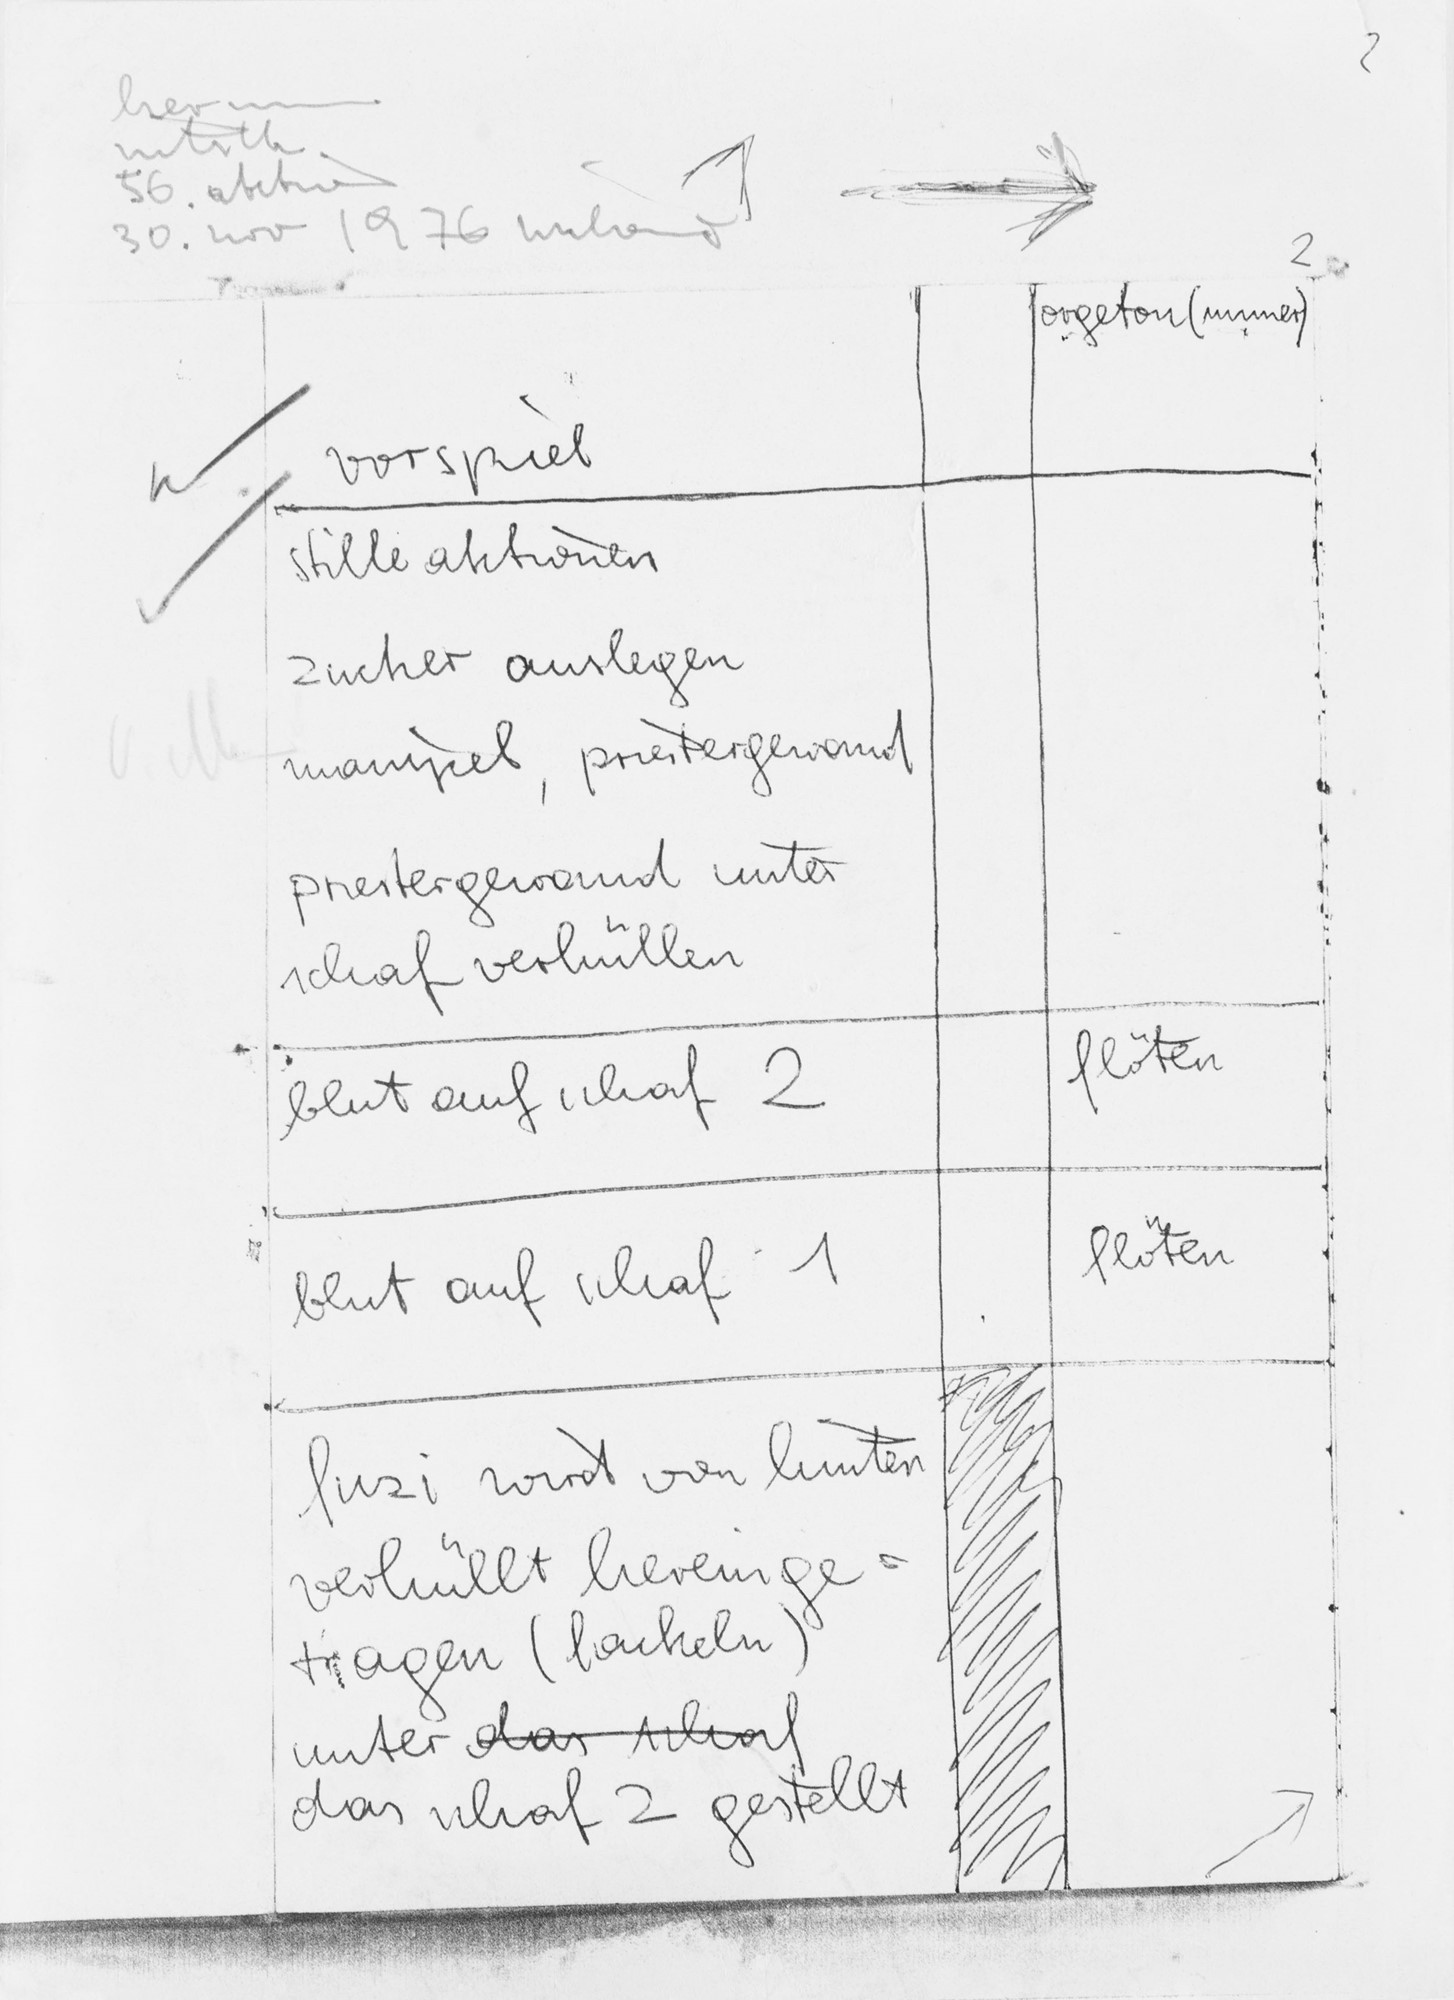 2
hermann
nitsch
56. aktion
30. nov 1976 mailand
2
orgelton (immer)
vorspiel
stille aktionen
zucker auslegen
manipel, priestergewand
priestergewand unter
schaf verhüllen
blut auf schaf 2
flöten
blut auf schaf 1
flöten
wird von hinten
verhüllt hereinge=
tragen (fackeln)
unter das schaf
das schaf 2 gestellt